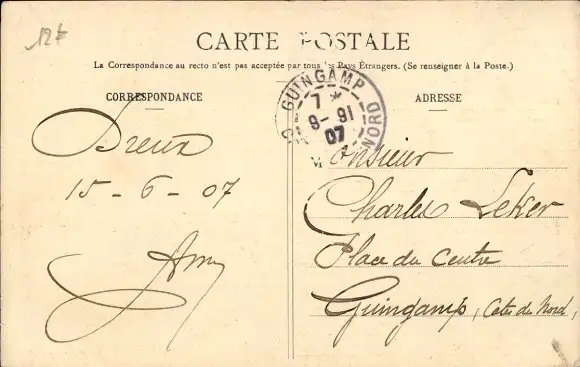 12f
CARTE POSTALE
La Correspondance au recto n'est pas acceptée par tous les Pays Étrangers. (Se renseigner à la Poste.)
CORRESPONDANCE
ADRESSE
GUINGAMP
7 *
16 - 6
07
NORD
Dreux
15 - 6 - 07
Monsieur
Charles Leker
Place du Centre
Guingamp, Côtes du Nord,